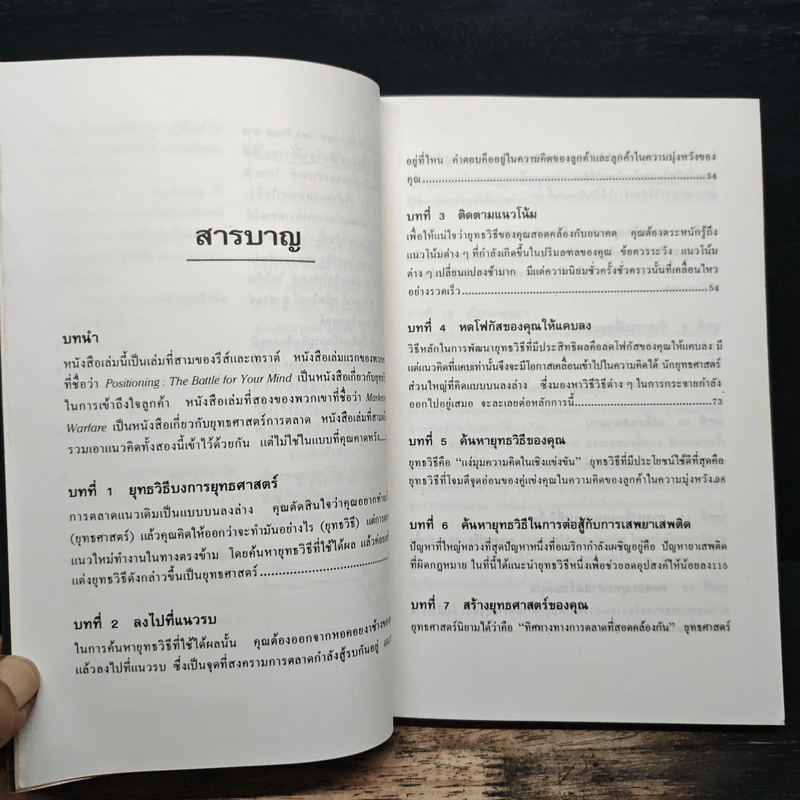 สารบาญ
บทนำ
หนังสือเล่มนี้เป็นเล่มที่สามของรีส์และเทราต์ หนังสือเล่มแรกของพวก
ที่ชื่อว่า Positioning : The Battle for Your Mind เป็นหนังสือเกี่ยวกับ
ในการเข้าถึงใจลูกค้า หนังสือเล่มที่สองของพวกเขาที่ชื่อว่า
Warfare เป็นหนังสือเกี่ยวกับยุทธศาสตร์การตลาด หนังสือเล่มที่สาม
รวมเอาแนวคิดทั้งสองนี้เข้าไว้ด้วยกัน แต่ไม่ใช่ในแบบที่คุณคาดหวัง....
บทที่ 1 ยุทธวิธีบงการยุทธศาสตร์
การตลาดแนวเดิมเป็นแบบบนลงล่าง คุณตัดสินใจว่าคุณอยากทำ
(ยุทธศาสตร์) แล้วคุณคิดให้ออกว่าจะทำมันอย่างไร (ยุทธวิธี) แต่การ
แนวใหม่ทำงานในทางตรงข้าม โดยค้นหายุทธวิธีที่ใช้ได้ผล แล้วค่อย
แต่งยุทธวิธีดังกล่าวขึ้นเป็นยุทธศาสตร์..............................
บทที่ 2 ลงไปที่แนวรบ
ในการค้นหายุทธวิธีที่ใช้ได้ผลนั้น คุณต้องออกจากหอคอยงาช้าง
แล้วลงไปที่แนวรบ ซึ่งเป็นจุดที่สงครามการตลาดกำลังสู้รบกันอยู่
อยู่ที่ไหน คำตอบคืออยู่ในความคิดของลูกค้าและลูกค้าในความมุ่งหวังของ
คุณ............................................................34
บทที่ 3 ติดตามแนวโน้ม
เพื่อให้แน่ใจว่ายุทธวิธีของคุณสอดคล้องกับอนาคต คุณต้องตระหนักรู้ถึง
แนวโน้มต่าง ๆ ที่กำลังเกิดขึ้นในปริมณฑลของคุณ ข้อควรระวัง : แนวโน้ม
ต่าง ๆ เปลี่ยนแปลงช้ามาก มีแต่ความนิยมชั่วครั้งชั่วคราวนั้นที่เคลื่อนไหว
อย่างรวดเร็ว......................................................54
บทที่ 4 หดโฟกัสของคุณให้แคบลง
วิธีหลักในการพัฒนายุทธวิธีที่มีประสิทธิผลคือลดโฟกัสของคุณให้แคบลง มี
แต่แนวคิดที่แคบเท่านั้นจึงจะมีโอกาสเคลื่อนเข้าไปในความคิดได้ นักยุทธศาสตร์
ส่วนใหญ่ที่คิดแบบบนลงล่าง ซึ่งมองหาวิธีวิธีต่าง ๆ ในการกระจายกำลัง
ออกไปอยู่เสมอ จะละเลยต่อหลักการนี้...............................73
บทที่ 5 ค้นหายุทธวิธีของคุณ
ยุทธวิธีคือ “แง่มุมความคิดในเชิงแข่งขัน” ยุทธวิธีที่มีประโยชน์ใช้ดีที่สุดคือ
ยุทธวิธีที่โจมตีจุดอ่อนของคู่แข่งคุณในความคิดของลูกค้าในความมุ่งหวัง.98
บทที่ 6 ค้นหายุทธวิธีในการต่อสู้กับการเสพยาเสพติด
ปัญหาที่ใหญ่หลวงที่สุดปัญหาหนึ่งที่อเมริกากำลังเผชิญอยู่คือ ปัญหายาเสพติด
ที่ผิดกฎหมาย ในที่นี้ได้แนะนำยุทธวิธีหนึ่งเพื่อช่วยลดอุปสงค์ให้น้อยลง115
บทที่ 7 สร้างยุทธศาสตร์ของคุณ
ยุทธศาสตร์นิยามได้ว่าคือ “ทิศทางทางการตลาดที่สอดคล้องกัน” ยุทธศาสตร์